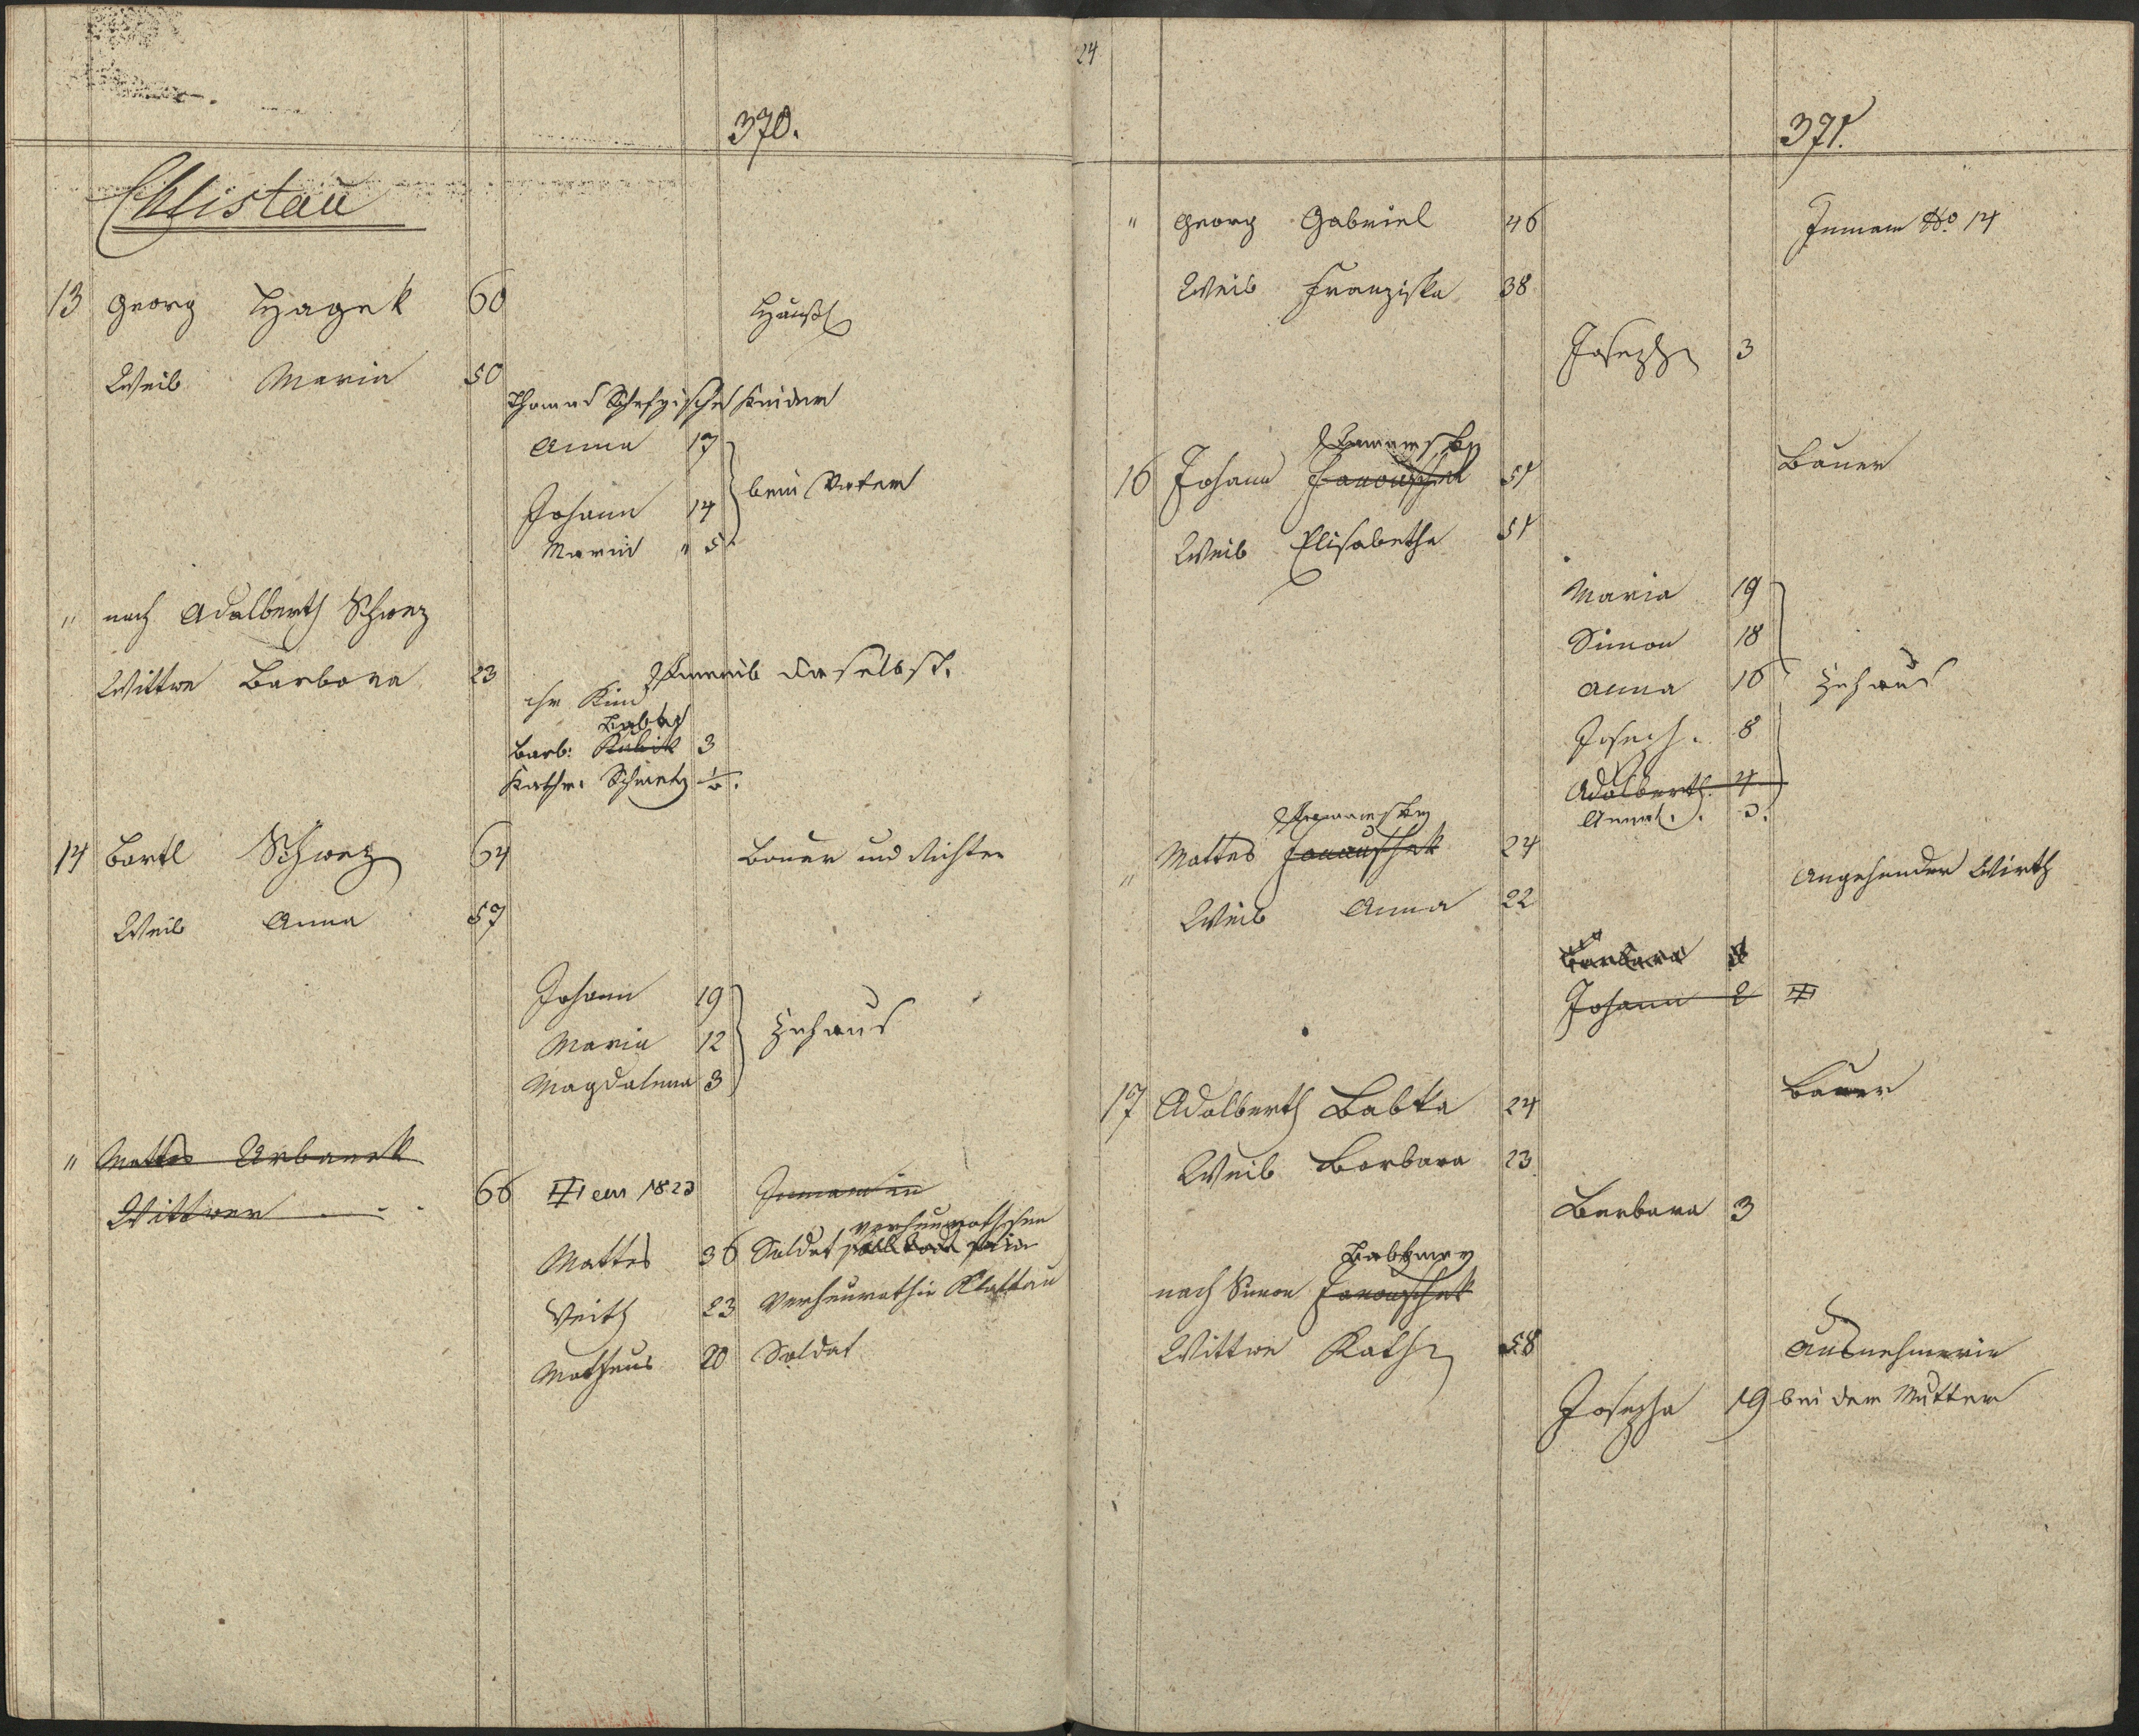 370.
Chlistau
13 Georg Hagek 60 Häusl
Weib Maria 50
Thomas Kinder
Anna 17
Johann 14 beim Vater
Maria " 5
" nach Adalberth Schwez
Wittwe Barbara 23 Inweib daselbst.
ihr Kind
Barb: Kubik 3
Kathr: Schwetz
14 Bartl Schwez 64 Bauer und Richter
Weib Anna 57
Johann 19
Maria 12 Zuhaus
Magdalena 3
" Mattes Urbanek
Wittwer 66 1823
verheurathet
Mattes 36 Soldat
Veith 23 verheurath in Klattau
Matheus 20 Soldat
24
371.
" Georg Gabriel 46 Inmann No 14
Weib Franziska 38
Joseph 3
16 Johann Janouschek 51 Bauer
Weib Elisabetha 51
Maria 19
Simon 18
Anna 16 Zuhaus
Joseph. 8
Adalberth. 4
Anna 3.
" Mattes Janauschek 24 Angehender Wirth
Weib Anna 22
Barbara
Johann 2
17 Adalberth Babka 24 Bauer
Weib Barbara 23
Barbara 3
nach Simon Janouschek
Wittwe Kath 58 Ausnehmerin
Josepha 19 bei der Mutter